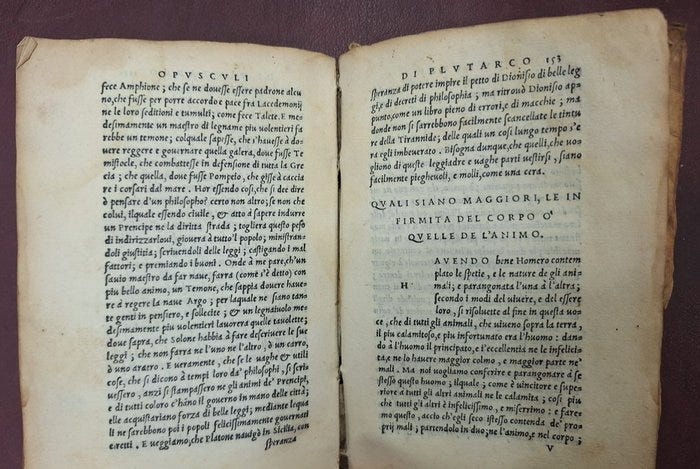 OPVSCVLI
fece Amphione; che se ne douesse essere padrone alcu
no, che fusse per porre accordo e pace fra Lacedemonij
ne le loro seditioni e tumulti; come fece Talete. E me
desimamente un maestro di legname piu uolentieri fa
rebbe un temone; colquale sapesse, che s'hauesse à do
uere reggere e gouernare quella galera, doue fusse Te
mistocle, che combattesse in defensione di tutta la Gre
cia; che quella, doue fusse Pompeio, che gisse à caccia
re i corsari dal mare. Hor essendo cosi, che si dee dire
è pensare d'un philosopho? certo non altro; se non che
colui, ilquale essendo ciuile, & atto à sapere indurre
un Prencipe ne la diritta strada; togliera questo peso
di indirizzarloui, giouera à tutto'l popolo; ministran
doli giustitia; scriuendoli delle leggi; castigando i mal
fattori; e premiando i buoni. Onde à me pare, ch'un
sauio maestro da far naue, farra (come s'è detto) con
piu bello animo, un Temone, che sappia douere hauer
e à regere la naue Argo; per laquale ne siano tan
te genti in pensiero, e sollecite; & un legnaiuolo me
desimamente piu uolentieri lauorera quelle tauolette;
doue sapra, che Solone habbia à fare descriuere le sue
leggi; che non farra ne l'uno ne l'altro, è un carro,
è uno aratro. E ueramente, che se le uaghe & utili
cose, che si dicono à tempi loro da' philosophi, si scri
uessero, anzi si stampassero ne gli animi de' Prencipi,
e di tutti coloro c'hano il gouerno in mano delle città;
elle acquistariano forza di belle leggi; mediante lequa
li ne sarebbono poi i popoli felicissimamente gouernati
e retti. E ueggiamo, che Platone nauigò in Sicilia, con
speranza
DI PLVTARCO 153
speranza di potere impire il petto di Dionisio di belle leg
gi, e di decreti di philosophia; ma ritrouò Dionisio ap
punto, come un libro pieno di errori, e di macchie; ma
che non si sarebbono facilmente scancellate le tintu
re della Tirannide; delle quali un cosi lungo tempo s'e
ra egli imbeuerato. Bisogna dunque, che quelli, che uo
gliono di queste leggiadre e uaghe parti uestirsi, siano
facilmente pieghеuoli, e molli, come una cera.
QVALI SIANO MAGGIORI, LE IN
FIRMITA DEL CORPO O'
QVELLE DE L'ANIMO.
H AVENDO bene Homero contem
plato le spetie, e le nature de gli ani
mali; e parangonata l'una à l'altra;
secondo i modi del uiuere, e del essere
loro, si risoluette al fine in questa uo
ce, che di tutti gli animali, che uiueno sopra la terra,
il piu calamitoso, e piu infortunato era l'huomo: dan
do à l'huomo il primato, e l'eccellentia ne le infelicita
, e ne lo hauere maggior colmo, e maggior parte ne'
mali. Ma noi uogliamo conferire e parangonare à se
stesso questo huomo; ilquale; come è uincitore e supe
riore à tutti gli altri ne la calamita; cosi piu
che tutti gli altri è infelicissimo, e miserrimo: e fare
mo questo, accio ch'egli seco istesso contenda de' pro
prij mali; partendolo in duo; ne l'animo, e nel corpo;
V